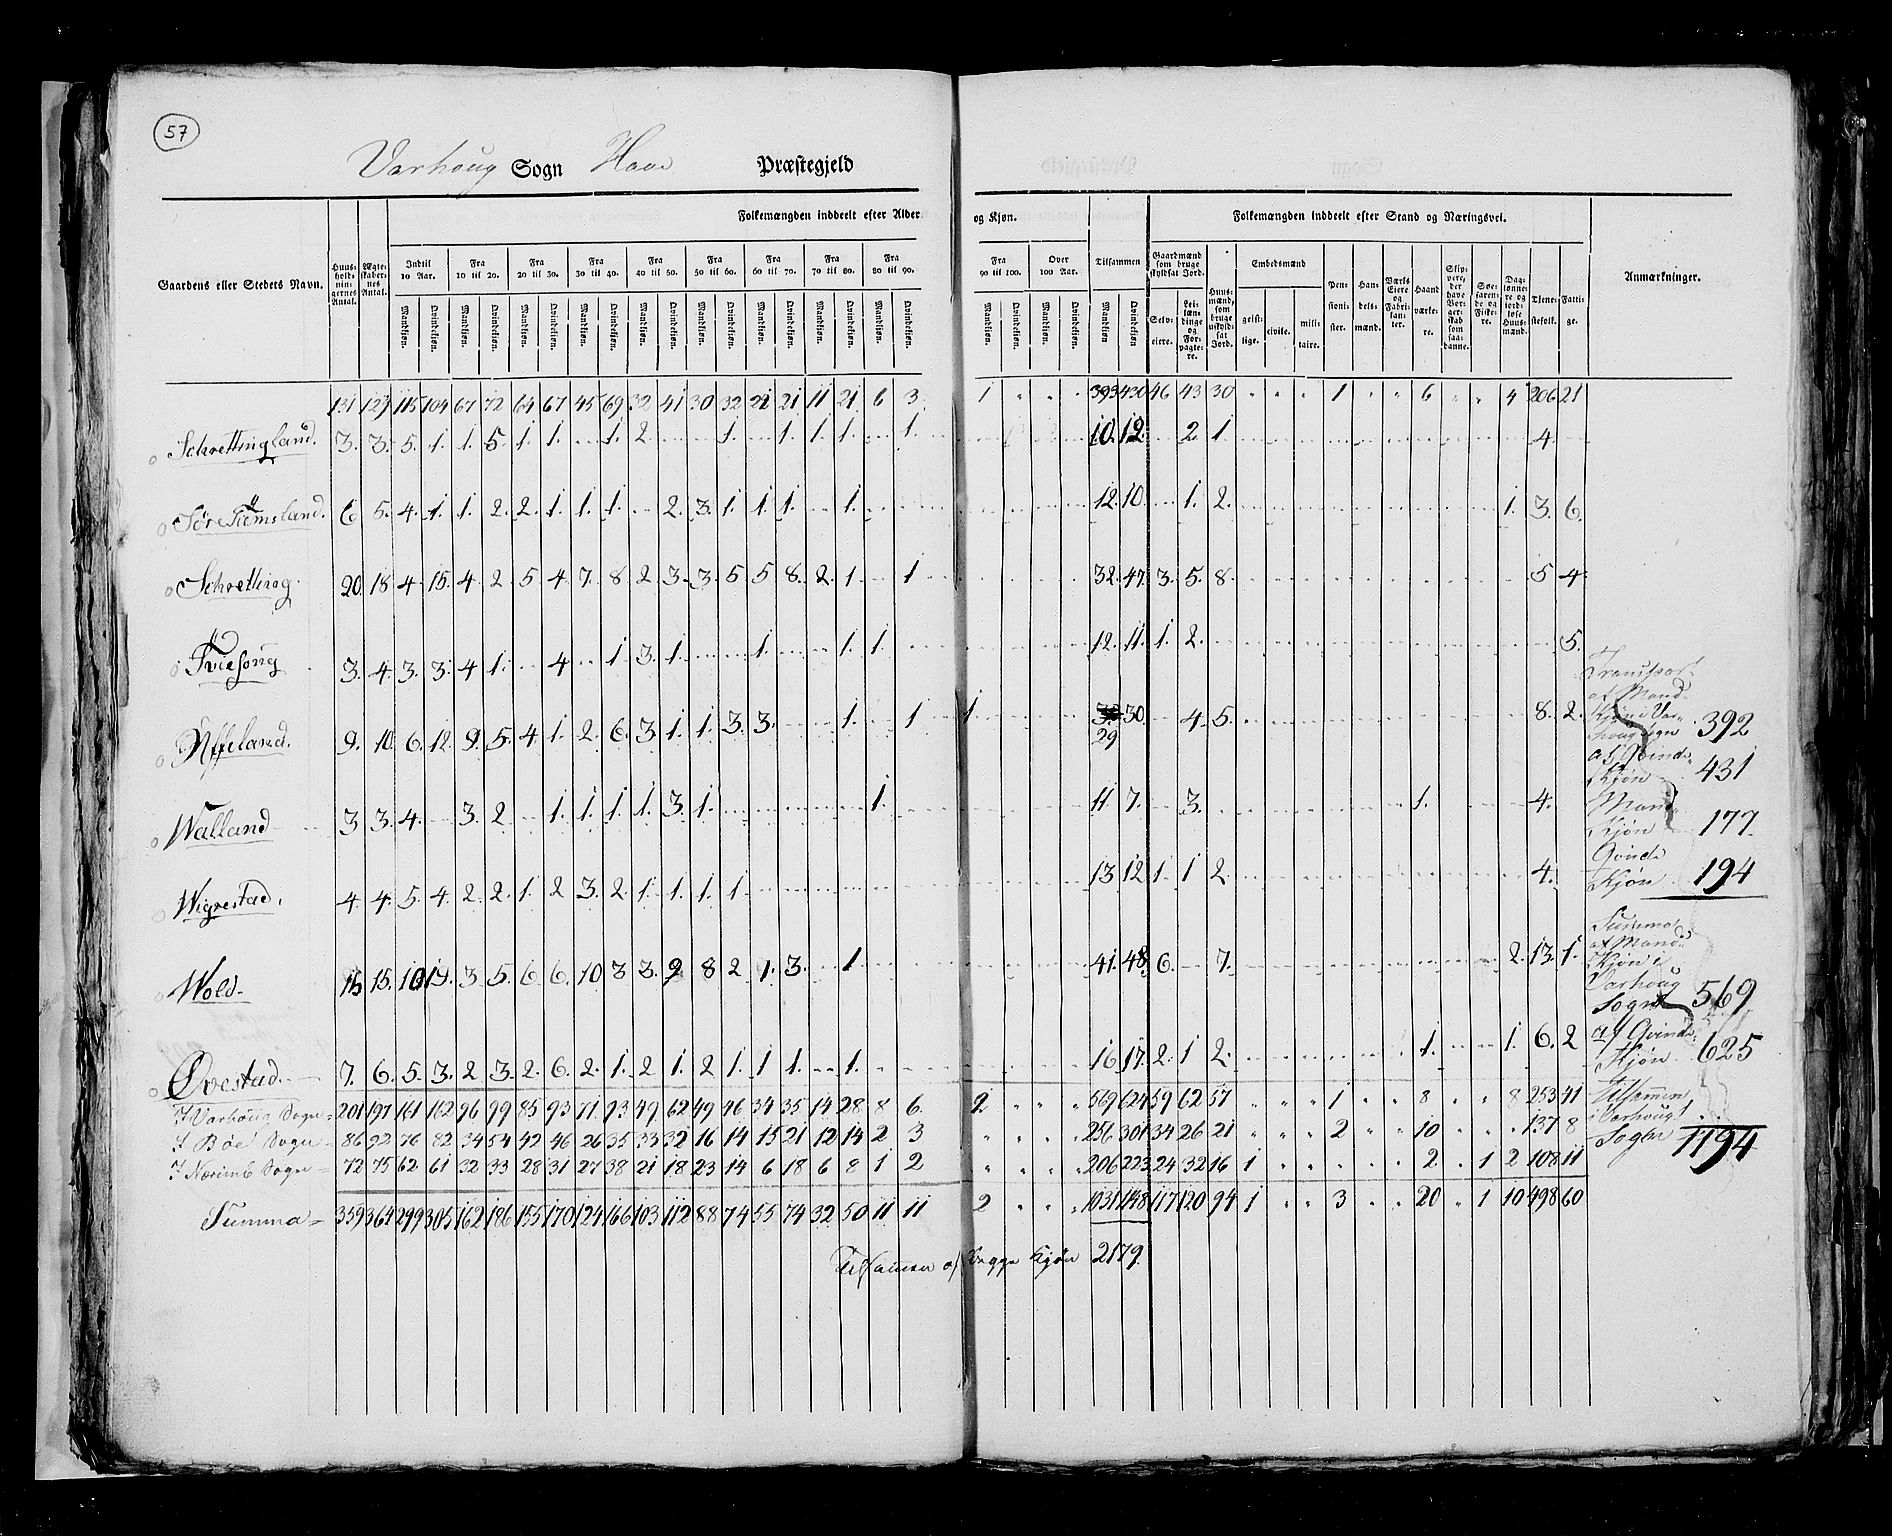 57
Varhoug Sogn Haae Præstegjeld
Folkemængden inddeelt efter Alder og Kjøn. Folkemængden inddeelt efter Stand og Næringsvei.
Gaardens eller Stedets Navn. Huusholdningernes Antal. Ægteskabernes Antal. Indtil 10 Aar. Fra 10 til 20. Fra 20 til 30. Fra 30 til 40. Fra 40 til 50. Fra 50 til 60. Fra 60 til 70. Fra 70 til 80. Fra 80 til 90. Fra 90 til 100. Over 100 Aar. Tilsammen Gaardmænd som bruge skyldsat Jord. Huusmænd, som bruge uskyldsat Jord. Embedsmænd Pensionister. Handelsmænd. Værks Eiere og Fabrikanter. Haandværkere. Skippere, der have Borgerskab som saadanne. Søefarende og Fiskere. Dagslønnere og jordløse Huusmænd. Tjenestefolk. Fattige. Anmærkninger.
Mandkjøn. Qvindekjøn. Mandkjøn. Qvindekjøn. Mandkjøn. Qvindekjøn. Mandkjøn. Qvindekjøn. Mandkjøn. Qvindekjøn. Mandkjøn. Qvindekjøn. Mandkjøn. Qvindekjøn. Mandkjøn. Qvindekjøn. Mandkjøn. Qvindekjøn. Mandkjøn. Qvindekjøn. Mandkjøn. Qvindekjøn. Mandkjøn. Qvindekjøn Selveiere. Leilændinge og Forpagtere. geistlige. civile. militaire.
131 123 115 104 67 72 64 67 45 69 32 41 30 32 21 21 11 21 6 3 1 " " " 393 430 46 43 30 " " " 1 " " 6 " " 4 206 21
Schrettingland. 3. 3. 5. 1. 1. 5. 1. 1. 1. 2 1. 1. 1. 1. 1. 10. 12. 2 1 4
Søre Tiemsland. 6 5. 4. 1. 1. 2. 2. 1. 1. 1. 2. 3. 1. 1. 1. 1. 12. 10. 1. 2. 1. 3. 6.
Schretting. 20. 18 4 15. 4 2 5 4 7. 8 2 3. 3. 5 5 8. 2. 1. 1 32. 47. 3. 5. 8. 5 4
Tviesong 3. 4. 3. 3. 4 1. 4 1 3. 1. 1. 1. 1. 12. 11. 1. 2. 5.
Uffeland. 9. 10. 6. 12. 9. 5. 4. 1. 2. 6. 3. 1. 1. 3 3. 1. 1 1 29 30. 4 5. 8. 2.
Walland 3 3. 4. 3. 2 1. 1. 1. 1. 3. 1. 1. 11. 7. 3. 1. 4.
Wigrestad. 4. 4. 5. 4. 2 2. 1. 2 3. 2. 1. 1. 1. 1 13. 12. 1. 1 2. 4.
Wold 15 15. 10 13. 3 5. 6 6. 10 3 3. 9 8 2 1. 3. 1 41. 48. 6. 7. 2. 13. 1.
Ørestad. 7. 6. 5. 3. 2 3. 2. 6. 2. 1. 2 1. 2 1. 1 1. 1. 16 17. 2. 1 2. 1. 1. 6. 2
I Varhoug Sogn = 201 197 161 162 96 99 85 93 71 93 49 62 49 46 34 35 14 28 8 6. 2 " " " 569 624 59 62 57 " " " 1 " " 8 " " 8 253 41
I Bøe Sogn = 86 92 76 82 34 54 42 46 26 35 33 32 16 14 15 21 12 14 2 3 " " " " 256 301 34 26 21 " " " 2 " " 10 " " " 137 8
I Nærimb Sogn = 72 75 62 61 32 33 28 31 27 38 21 18 23 14 6 18 6 8 1 2 " " " " 206 223 24 32 16 1 " " " " " 2 " 1 2 108 11
Summa = 359 364 299 305 162 186 155 170 124 166 103 112 88 74 55 74 32 50 11 11 2 " " " 1031 1148 117 120 94 1 " " 3 " " 20 " 1 10 498 60
Tilsammen af begge Kjøn 2179.
Transport
af Mand
Kjøn i Var=
houg Sogn 392
af Qvinde
Kjøn 431
Mand
Kjøn 177
Qvinde
Kjøn 194
Summa
af Mand
Kjøn i
Varhoug
Sogn 569
af Qvinde
Kjøn 625
Tilsammen
i Varhoug
Sogn 1194